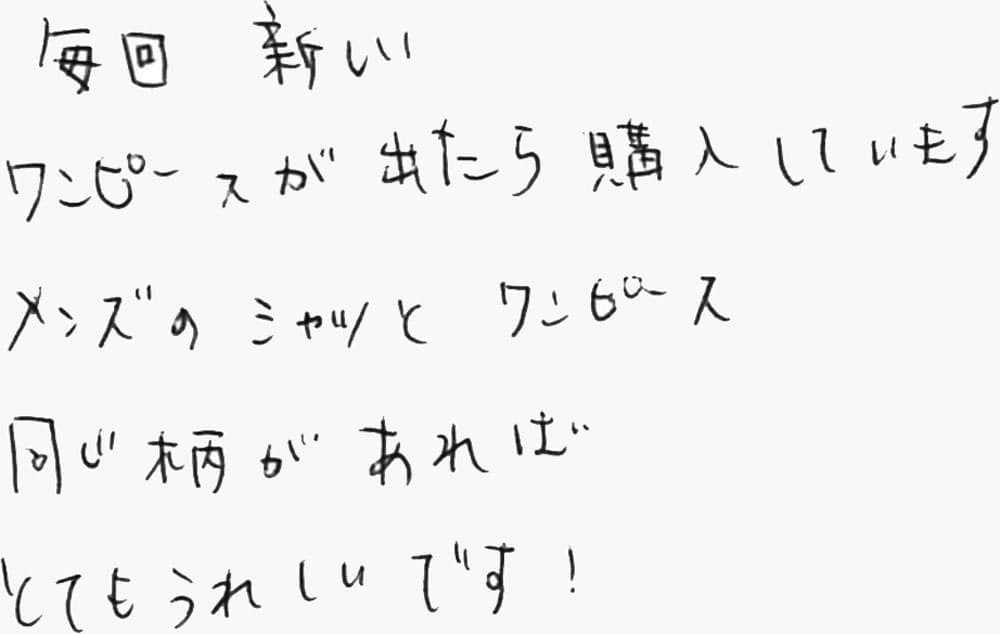 毎回 新しい
ワンピースが出たら購入しています
メンズのシャツと ワンピース
同じ柄があれば
とてもうれしいです!